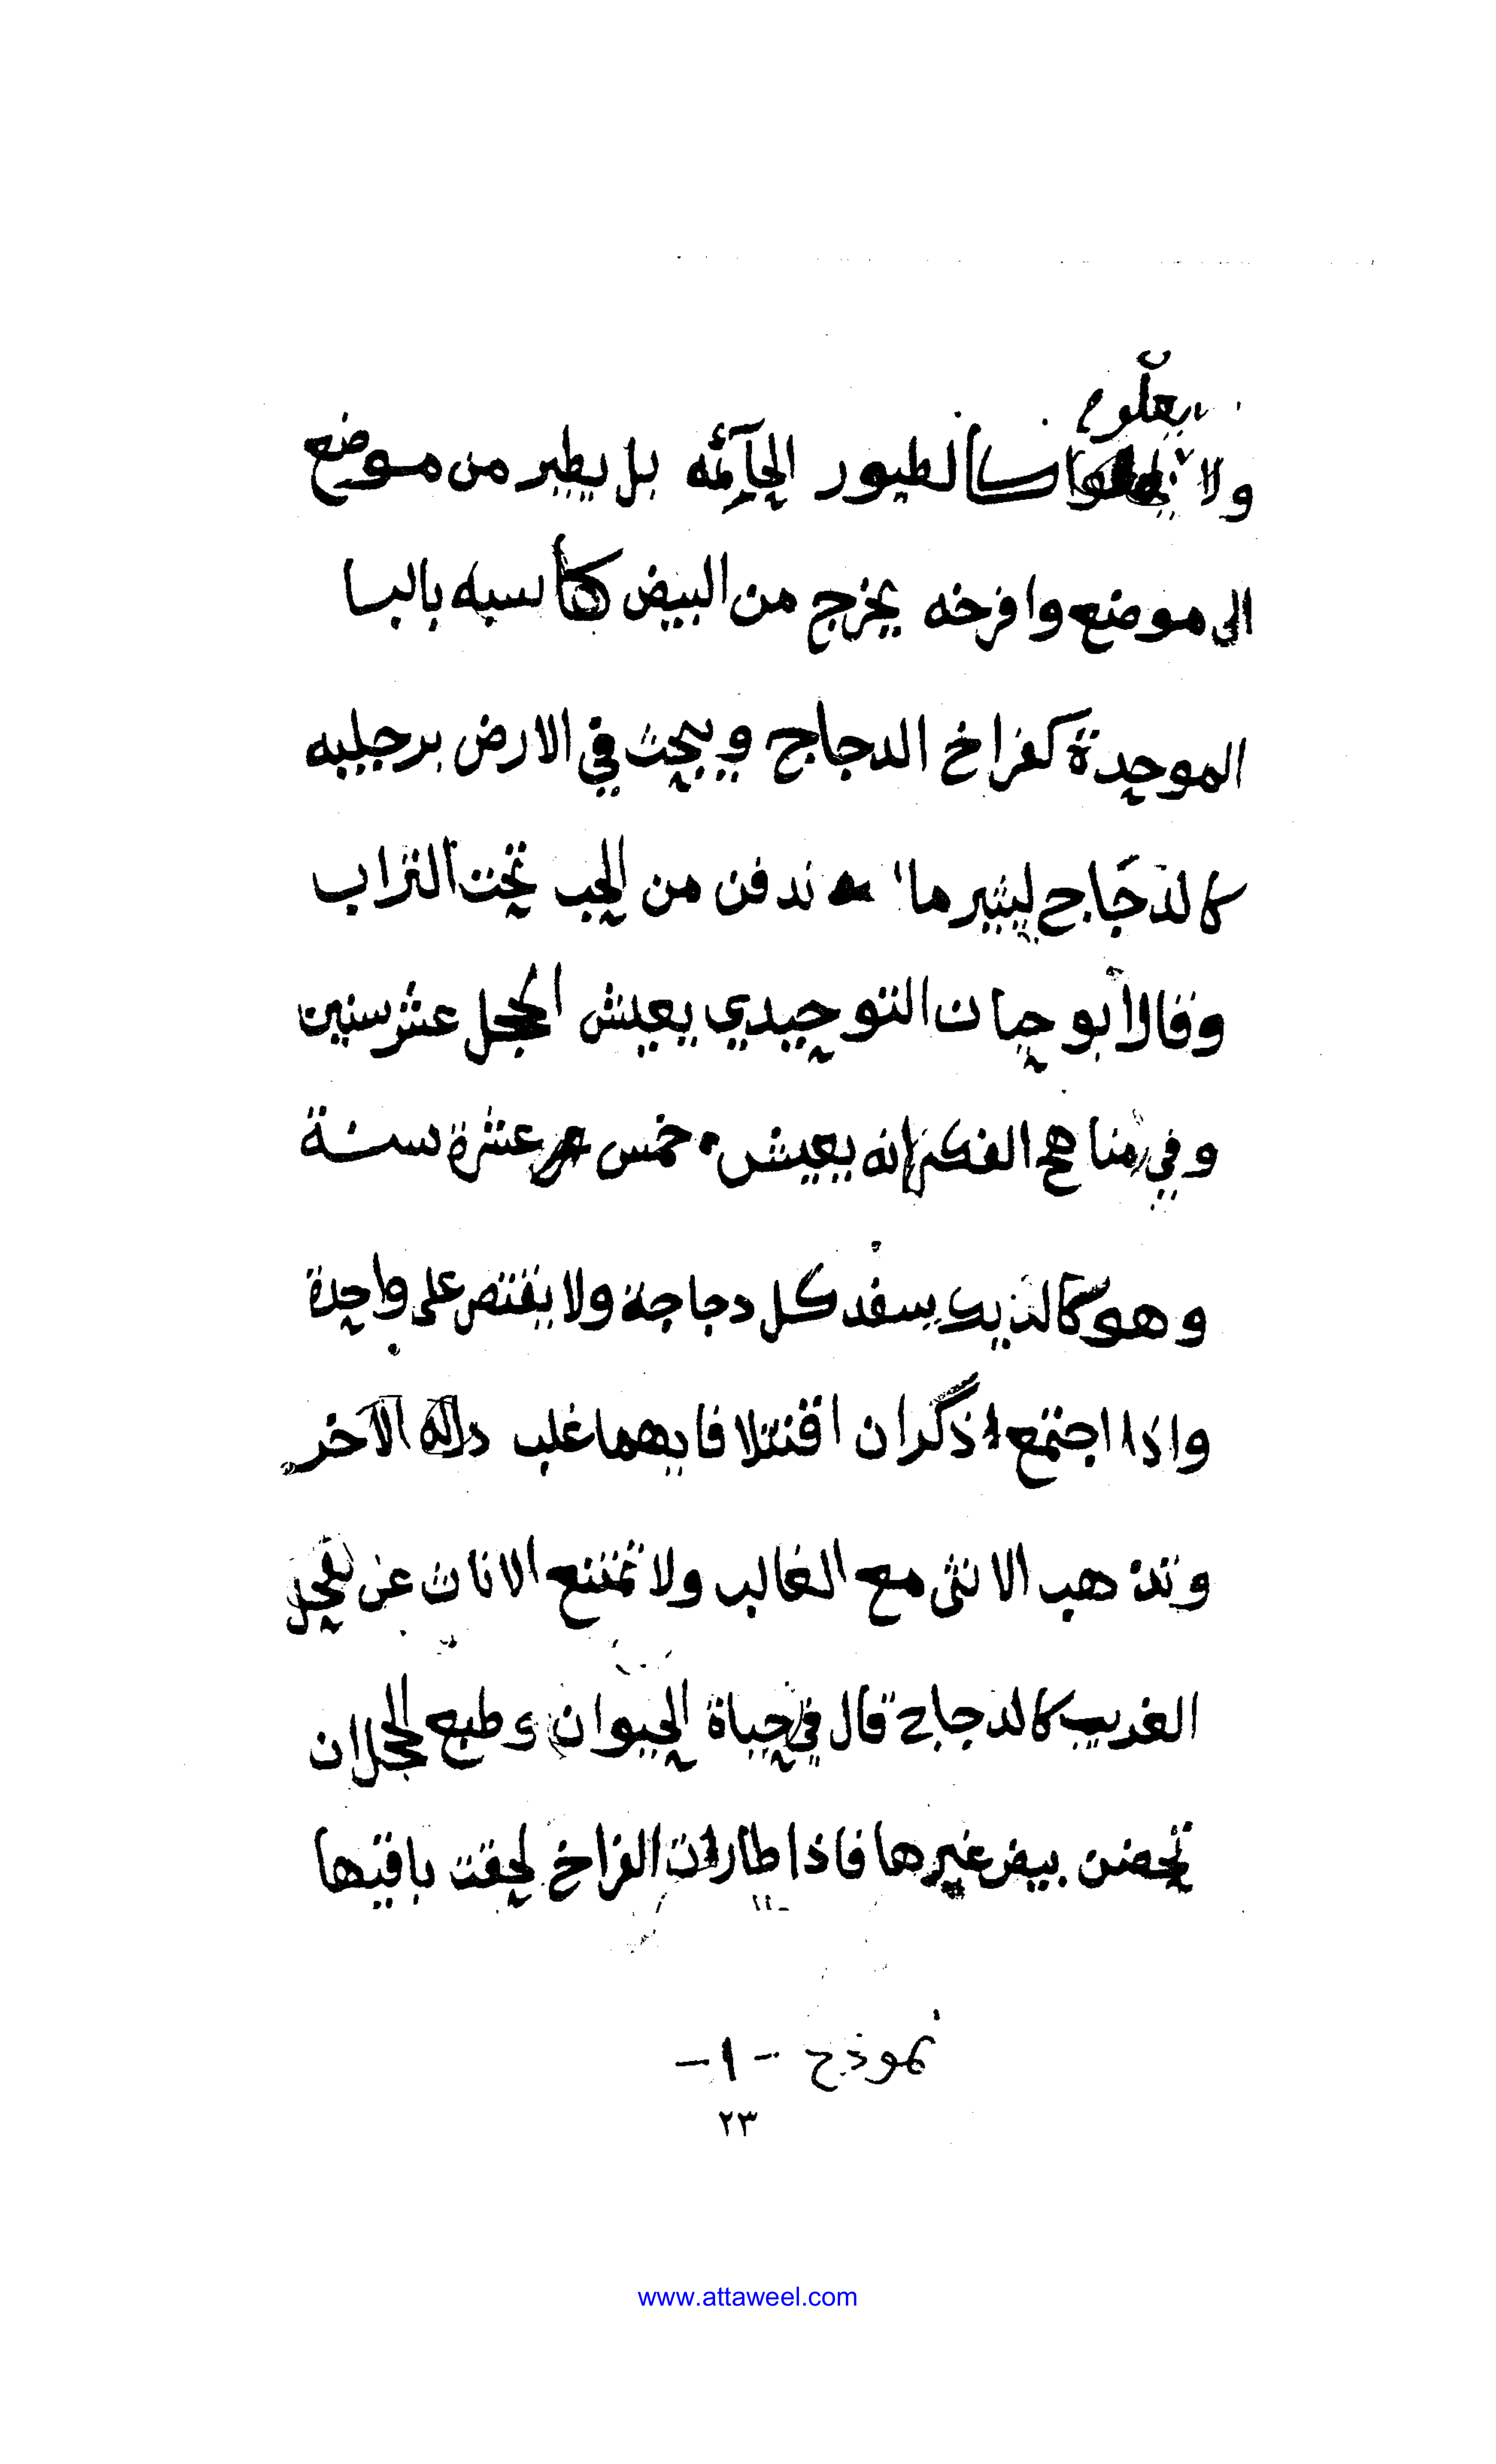 يعلو
ولا كالطيور الحآئمه بل يطير من موضع
الى موضع وافرخه يخرج من البيض كأسبه بالبا
الموحدة كفراخ الدجاج ويبحث في الارض برجليه
كالدجاج ليثير ما اندفن من الحب تحت التراب
وقال أبو حيان التوحيدي يعيش الحجل عشر سنين
وفي مناهج الفكر انه يعيش خمس عشرة سنة
وهو كالديك يسفد كل دجاجة ولا يقتصر على واحدة
واذا اجتمع ذكران اقتتلا فايهما غلب ذل له الآخر
وتذهب الانثى مع الغالب ولا تمتنع الاناث عن
الغريب كالدجاج قال في حياة الحيوان وطبع الحجل ان
تحضن بيض غيرها فاذا طارت الفراخ لحقت باقيها
نموذج -١-
٢٣
www.attaweel.com